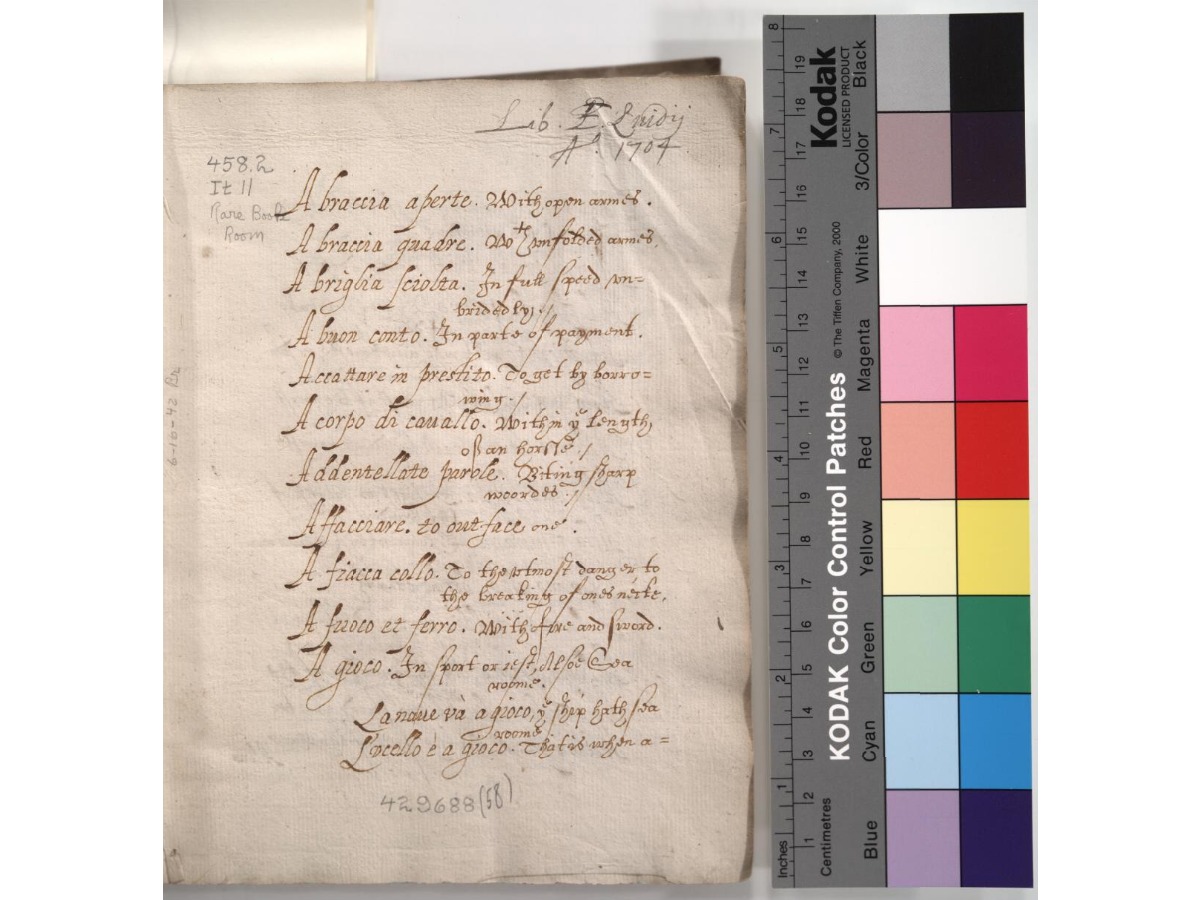 Lib. E. Lhidij
Aº. 1704
458.2
It 11
Rare Book
Room
A braccia aperte. With open armes.
A braccia quadre. Wth vnfolded armes.
A briglia sciolta. In full speed vn=
bridedly./
A buon conto. In parte of payment.
Accattare in prestito. To get by borro=
wing./
A corpo di cauallo. Within ye length,
of an horsse./
Addentellate parole. Biting sharp
woordes./
Affacciare. to out face one.
A fiacca collo. To the vtmost danger to
the breaking of ones necke.
A fuoco et ferro. With fire and sword.
A gioco. In sport or iest, Alsoe Sea
roome.
La naue và a gioco, ye ship hath sea
roome
L'vcello è a gioco. That is when a=
429688(58)
6-10-42 Br
Kodak
LICENSED PRODUCT
KODAK Color Control Patches
© The Tiffen Company, 2000
Black
3/Color
White
Magenta
Red
Yellow
Green
Cyan
Blue
Inches
1 2 3 4 5 6 7 8
Centimetres
1 2 3 4 5 6 7 8 9 10 11 12 13 14 15 16 17 18 19